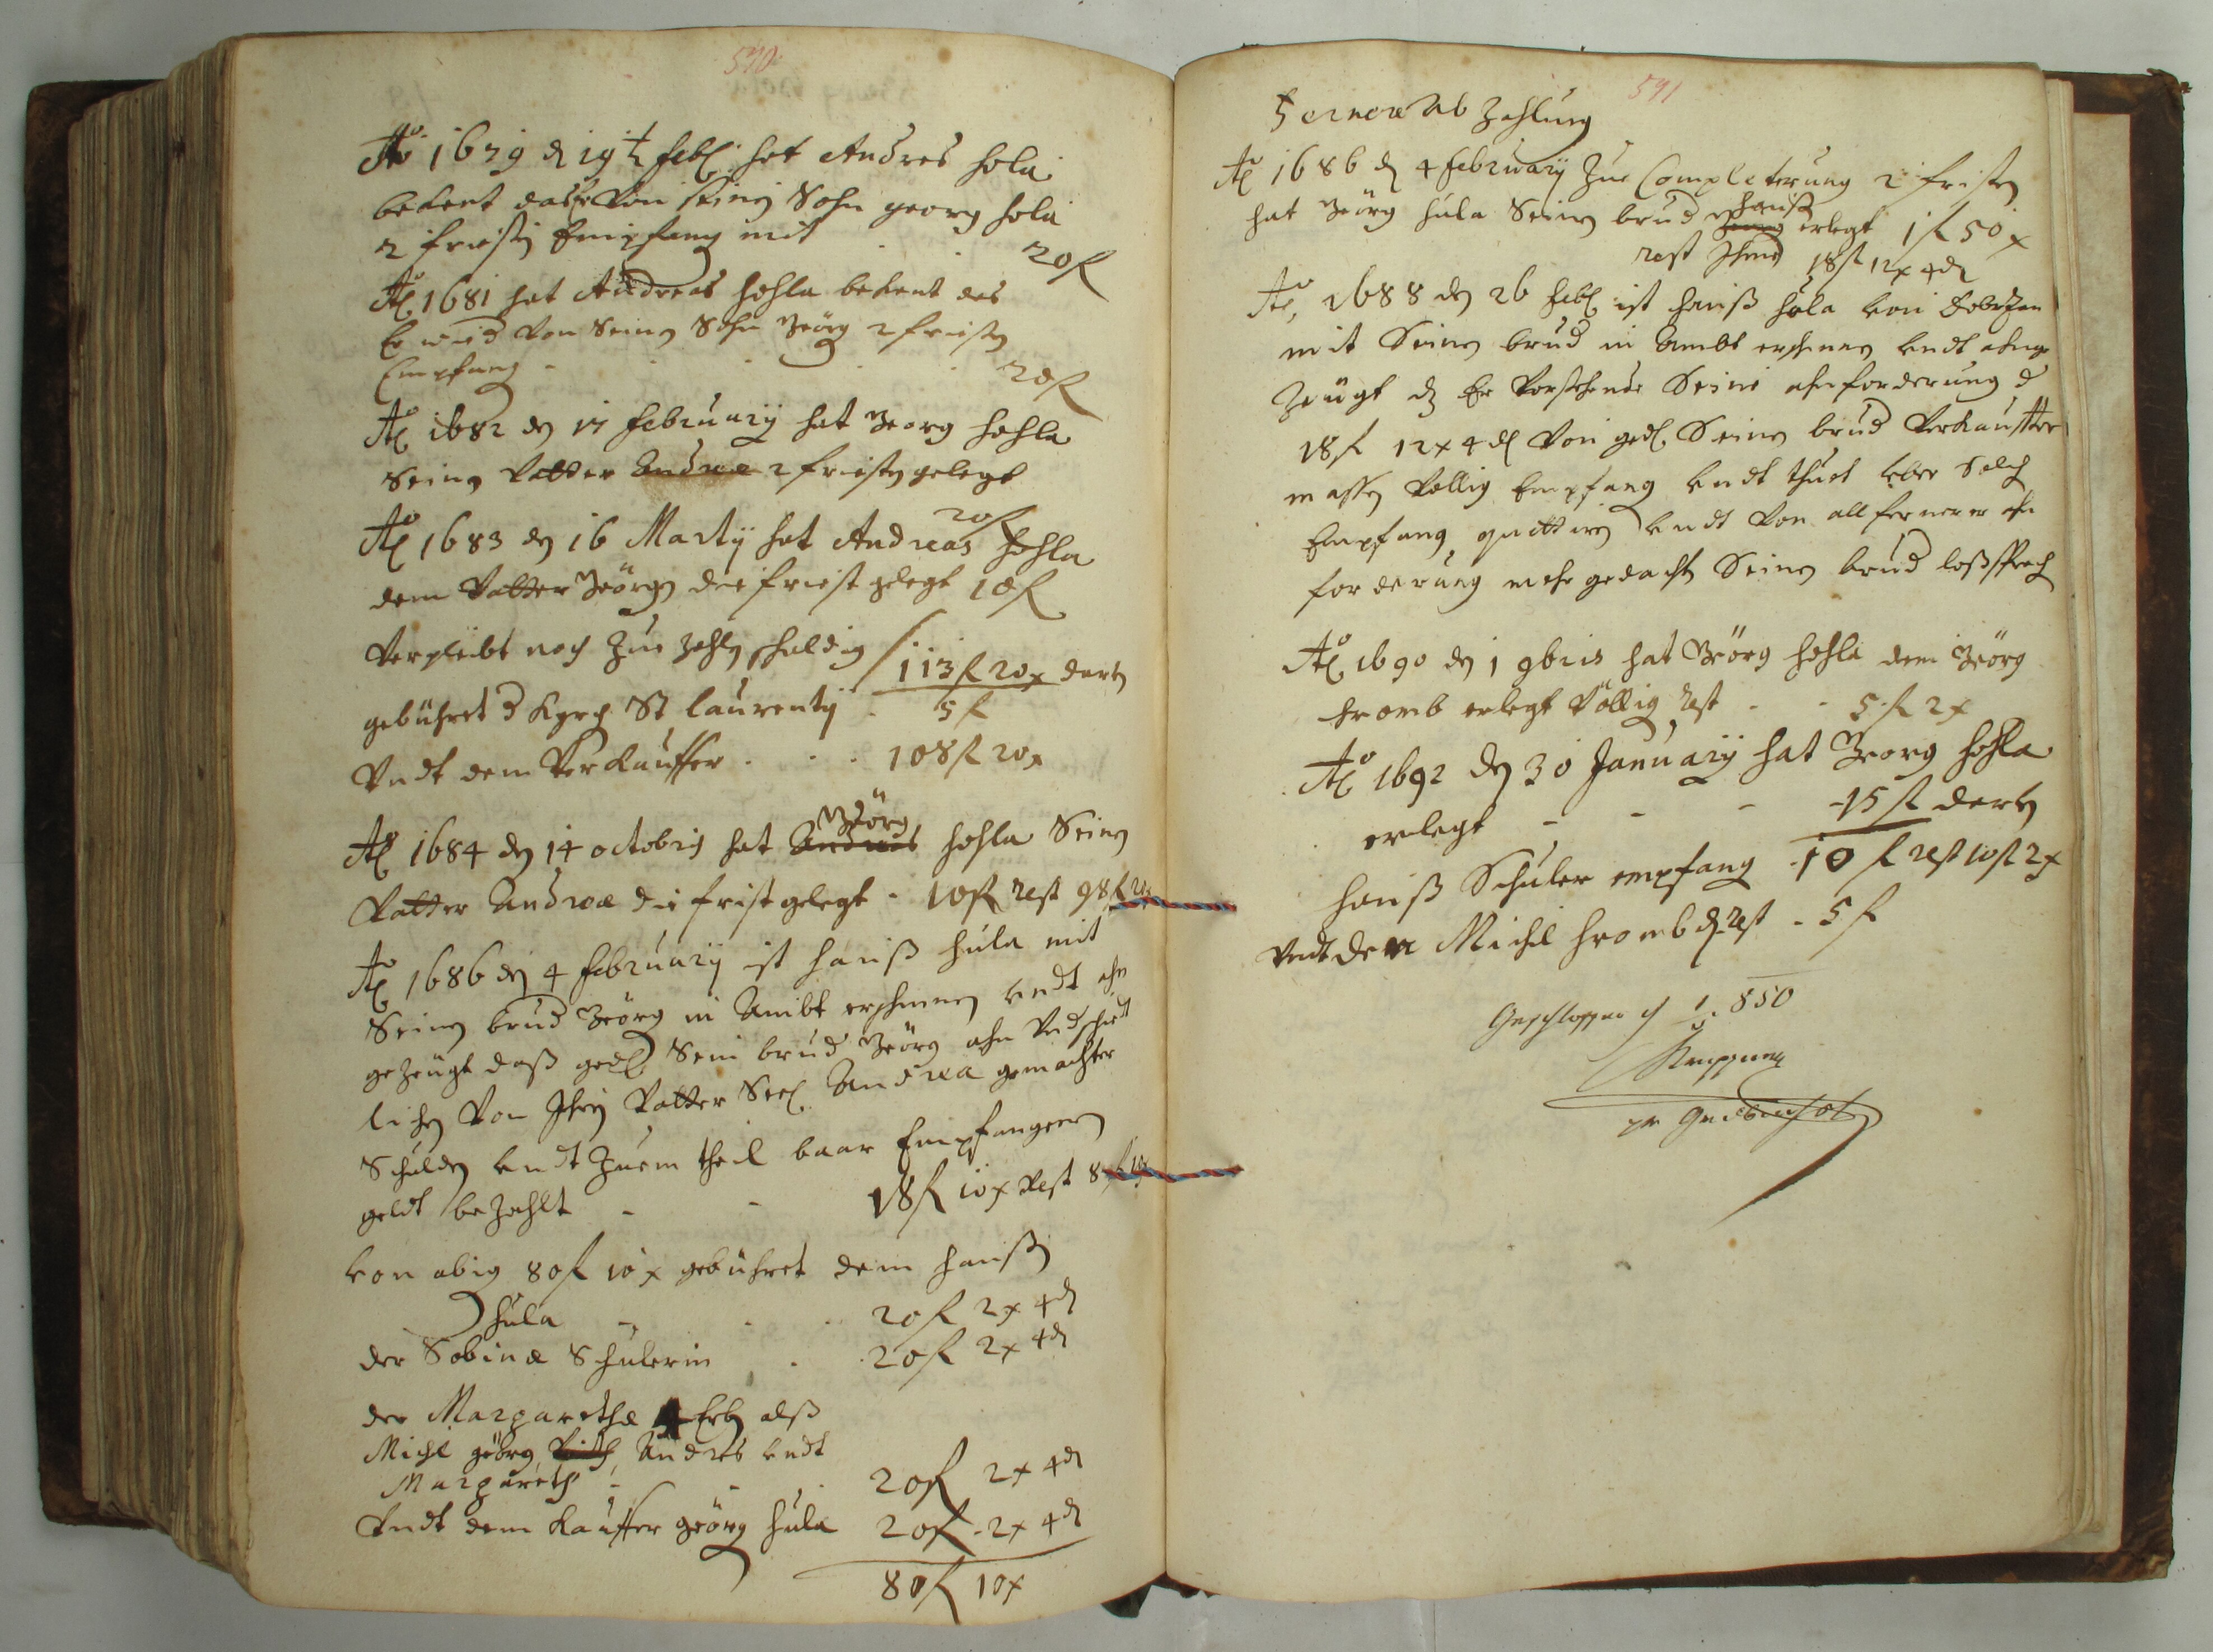 590
Aō 1679 d 19t febr: hat Andres hola
bekent das er von seinen Sohn georg hola
2 fristen Empfangen mit . . 20 fl
Aō 1681 hat Andreas hohla bekent das
Er wied von Seinen Sohn Georg 2 fristen
Empfangen - . . . 20 fl
Aō 1682 den 17 february hat Georg hohla
Seinen Vatter Andreæ 2 fristen gelegt
20 fl
Aō 1683 den 16 Marty hat Andreas hohla
dem Vatter Georgen die frist gelegt 10 fl
Verpleibt noch zue zahlen schuldig 113 fl 20 x darvon
gebühret d Kyrchen St laurenty . 5 fl
Vndt dem Verkauffer . . . 108 fl 20 x
Geörg
Aō 1684 den 14 octobris hat Andreas hohla Seinen
Vatter Andreæ die frist gelegt - 10 fl rest 98 fl 20 x
Aō 1686 den 4 february ist hanß hula mit
Seinen brud Geörg in Ambt erschinnen vndt ahn
gezeugt daß gedl Sein brud Geörg ahn Vndschiedt
lichen von Ihren Vatter Seel Andrea gemachter
Schulden vndt zuem theil baar Empfangenen
geldt bezahlt - - 18 fl 10 x Rest 80 fl 10 x
von obig 80 fl 10 x gebühret dem hanßen
hula - . . 20 fl 2 x 4 d
der Sabinæ Schulerin . . 20 fl 2 x 4 d
der Margarethæ 4 Erben alß
Michl georg, Andres vndt
Margareth - - . 20 fl 2 x 4 d
Vndt dem Kauffer georg hula 20 fl - 2 x 4 d
80 fl 10 x
591
Fernere Ab Zahlung
Aō 1686 den 4 february Zue Completerung 2 fristen
hanß
hat Geörg hula Seinen brud erlegt 1 fl 50 x
rest Ihme 18 fl 12 x 4 d
Aō, 1688 den 26 febr ist hanß hola von
mit Seinen brud in Ambt erschinnen vndt ahnge
Zeugt dz Er Vorstehende Seine ahnforderung d
18 fl 12 x 4 d von gedl Seinen brud Verkauffter
massen Völlig Empfangen vndt thuet vber Solch
Empfang quittiren vndt von all fernerer ahn
forderung mehr gedachten Seinen brud loßsprechen
Aō 1690 den 1 9bris hat Geörg hohla dem Geörg
hromb erlegt Völlig rest - - 5 fl 2 x
Aō 1692 den 30 January hat Georg hohla
erlegt - - - 15 fl darvon
hanß Schuler empfangen - 10 fl rest 10 fl 2 x
Vndt dem Michl hromb d rest - 5 fl
Geschlossen 850